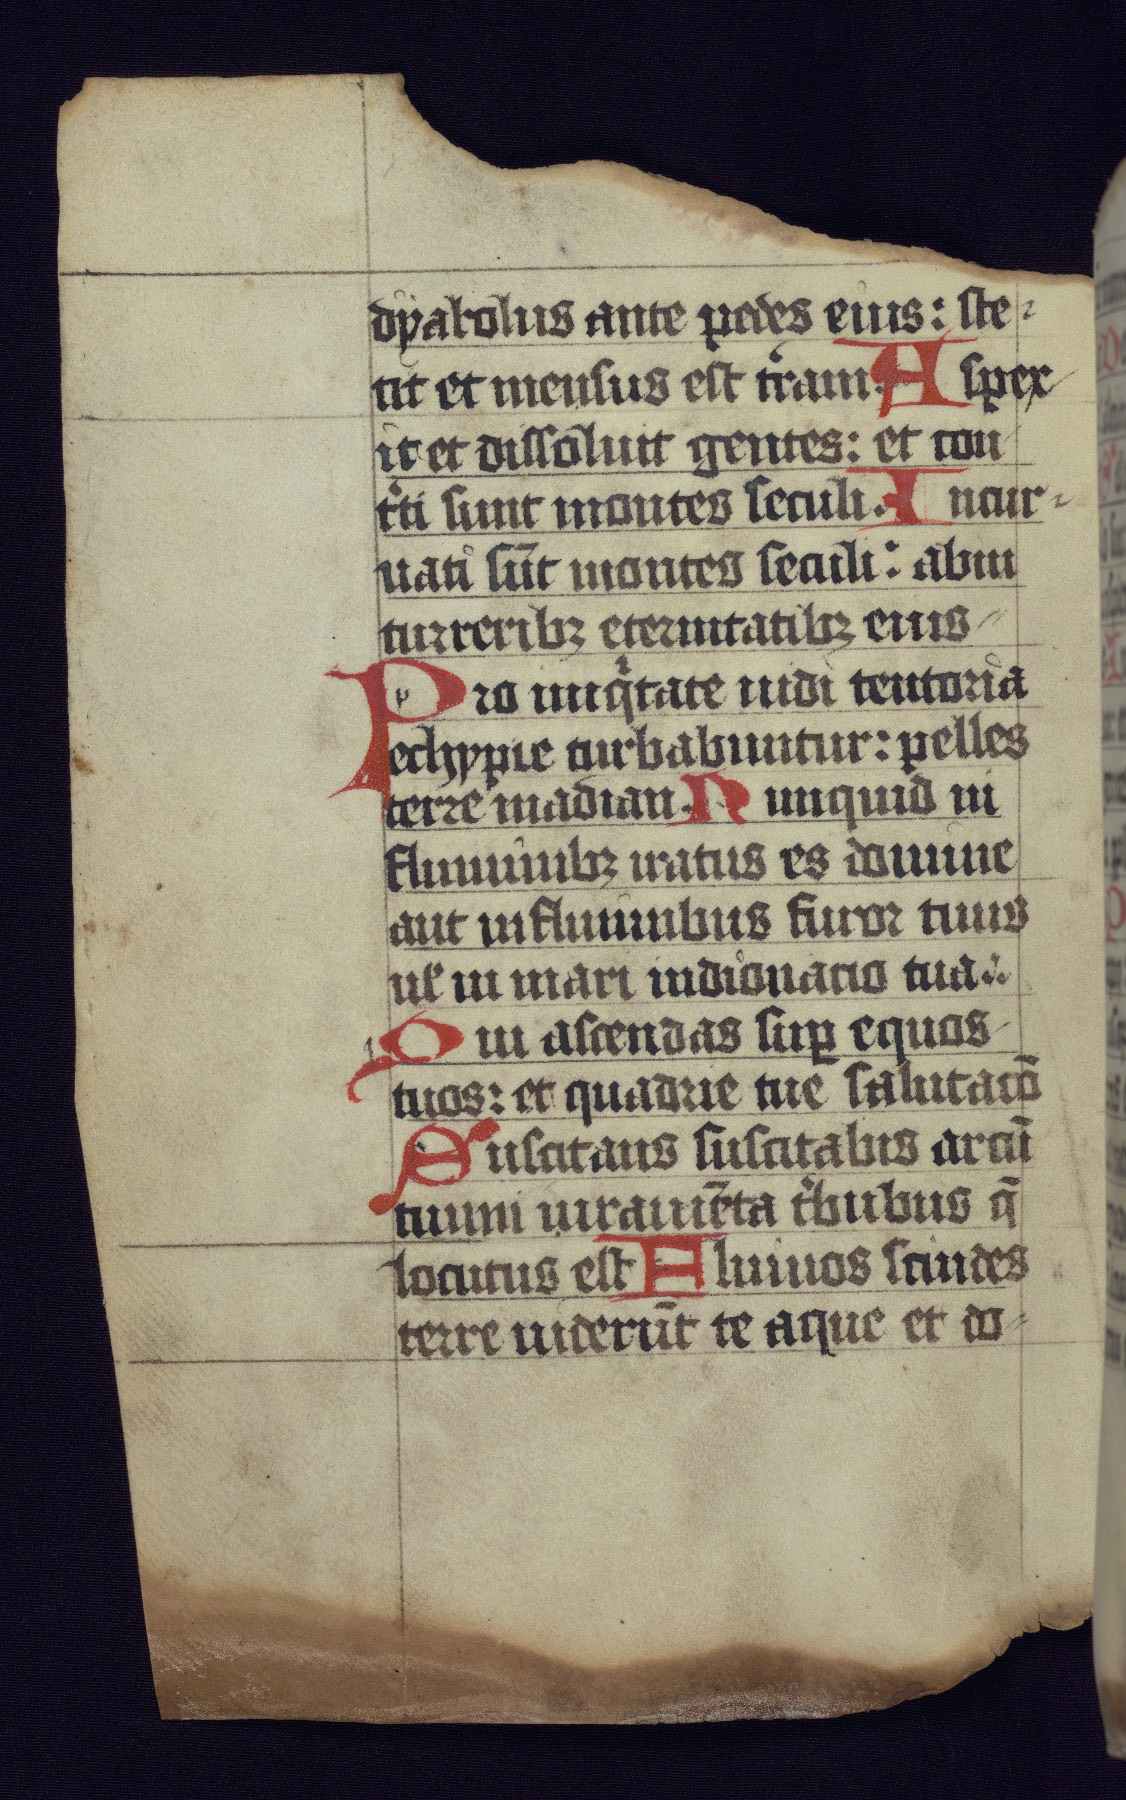 dyabolus ante pedes eius: ste-
tit et mensus est t̉ram. Aspex
it et dissoluit gentes: et con
t̉ti sunt montes seculi. Incur-
uati sūt montes seculi: abiti
turreribꝫ eternitatibꝫ eius
Pro iniqͥtate uidi tentoria
echypie turbabuntur: pelles
terre madian. Nunquid in
fluminibꝫ iratus es domine
aut influminibus furor tuus
ul̉ in mari indignacio tua:
Qui ascendas suꝑ equos
tuos: et quadrie tue saluatacō
Suscitans suscitabis arcū
tuum iuramēta tͥbubus q̄
locutus est Fluuios scindes
terre uiderūt te aque et do-